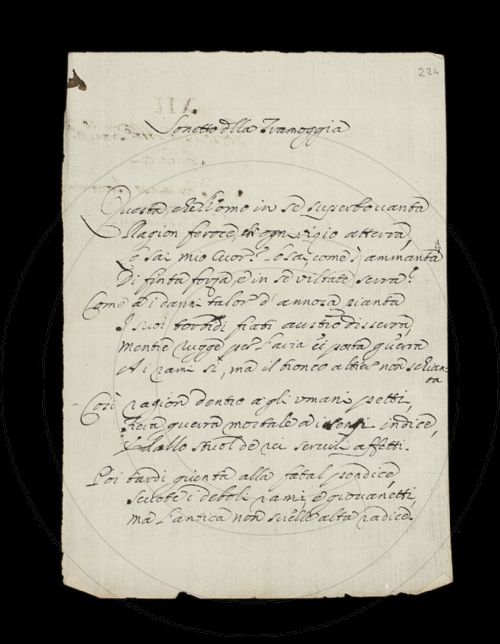 224
Sonetto dlla Tramoggia
Questa, che l'omo in sé superbo vanta
Ragion feroce, ch ogni vizio atterra,
Lo sai mio Cuor? lo sai, come s'ammanta
Di finta forza, e in se viltate serra?
Come a i danni talor d'annosa pianta
I suoi torbidi fiati austro disserra,
Mentre rugge per l'aria e porta guerra
A i rami sì, ma il tronco altier non schianta
Così ragion dentro agli umani petti,
Reca guerra mortale a i sensi indice,
E dallo stuol de rei servili affetti.
Poi tardi giunta alla fatal pendice,
Scuote i deboli rami, e giovanetti,
ma l'antica non svelle alta radice.